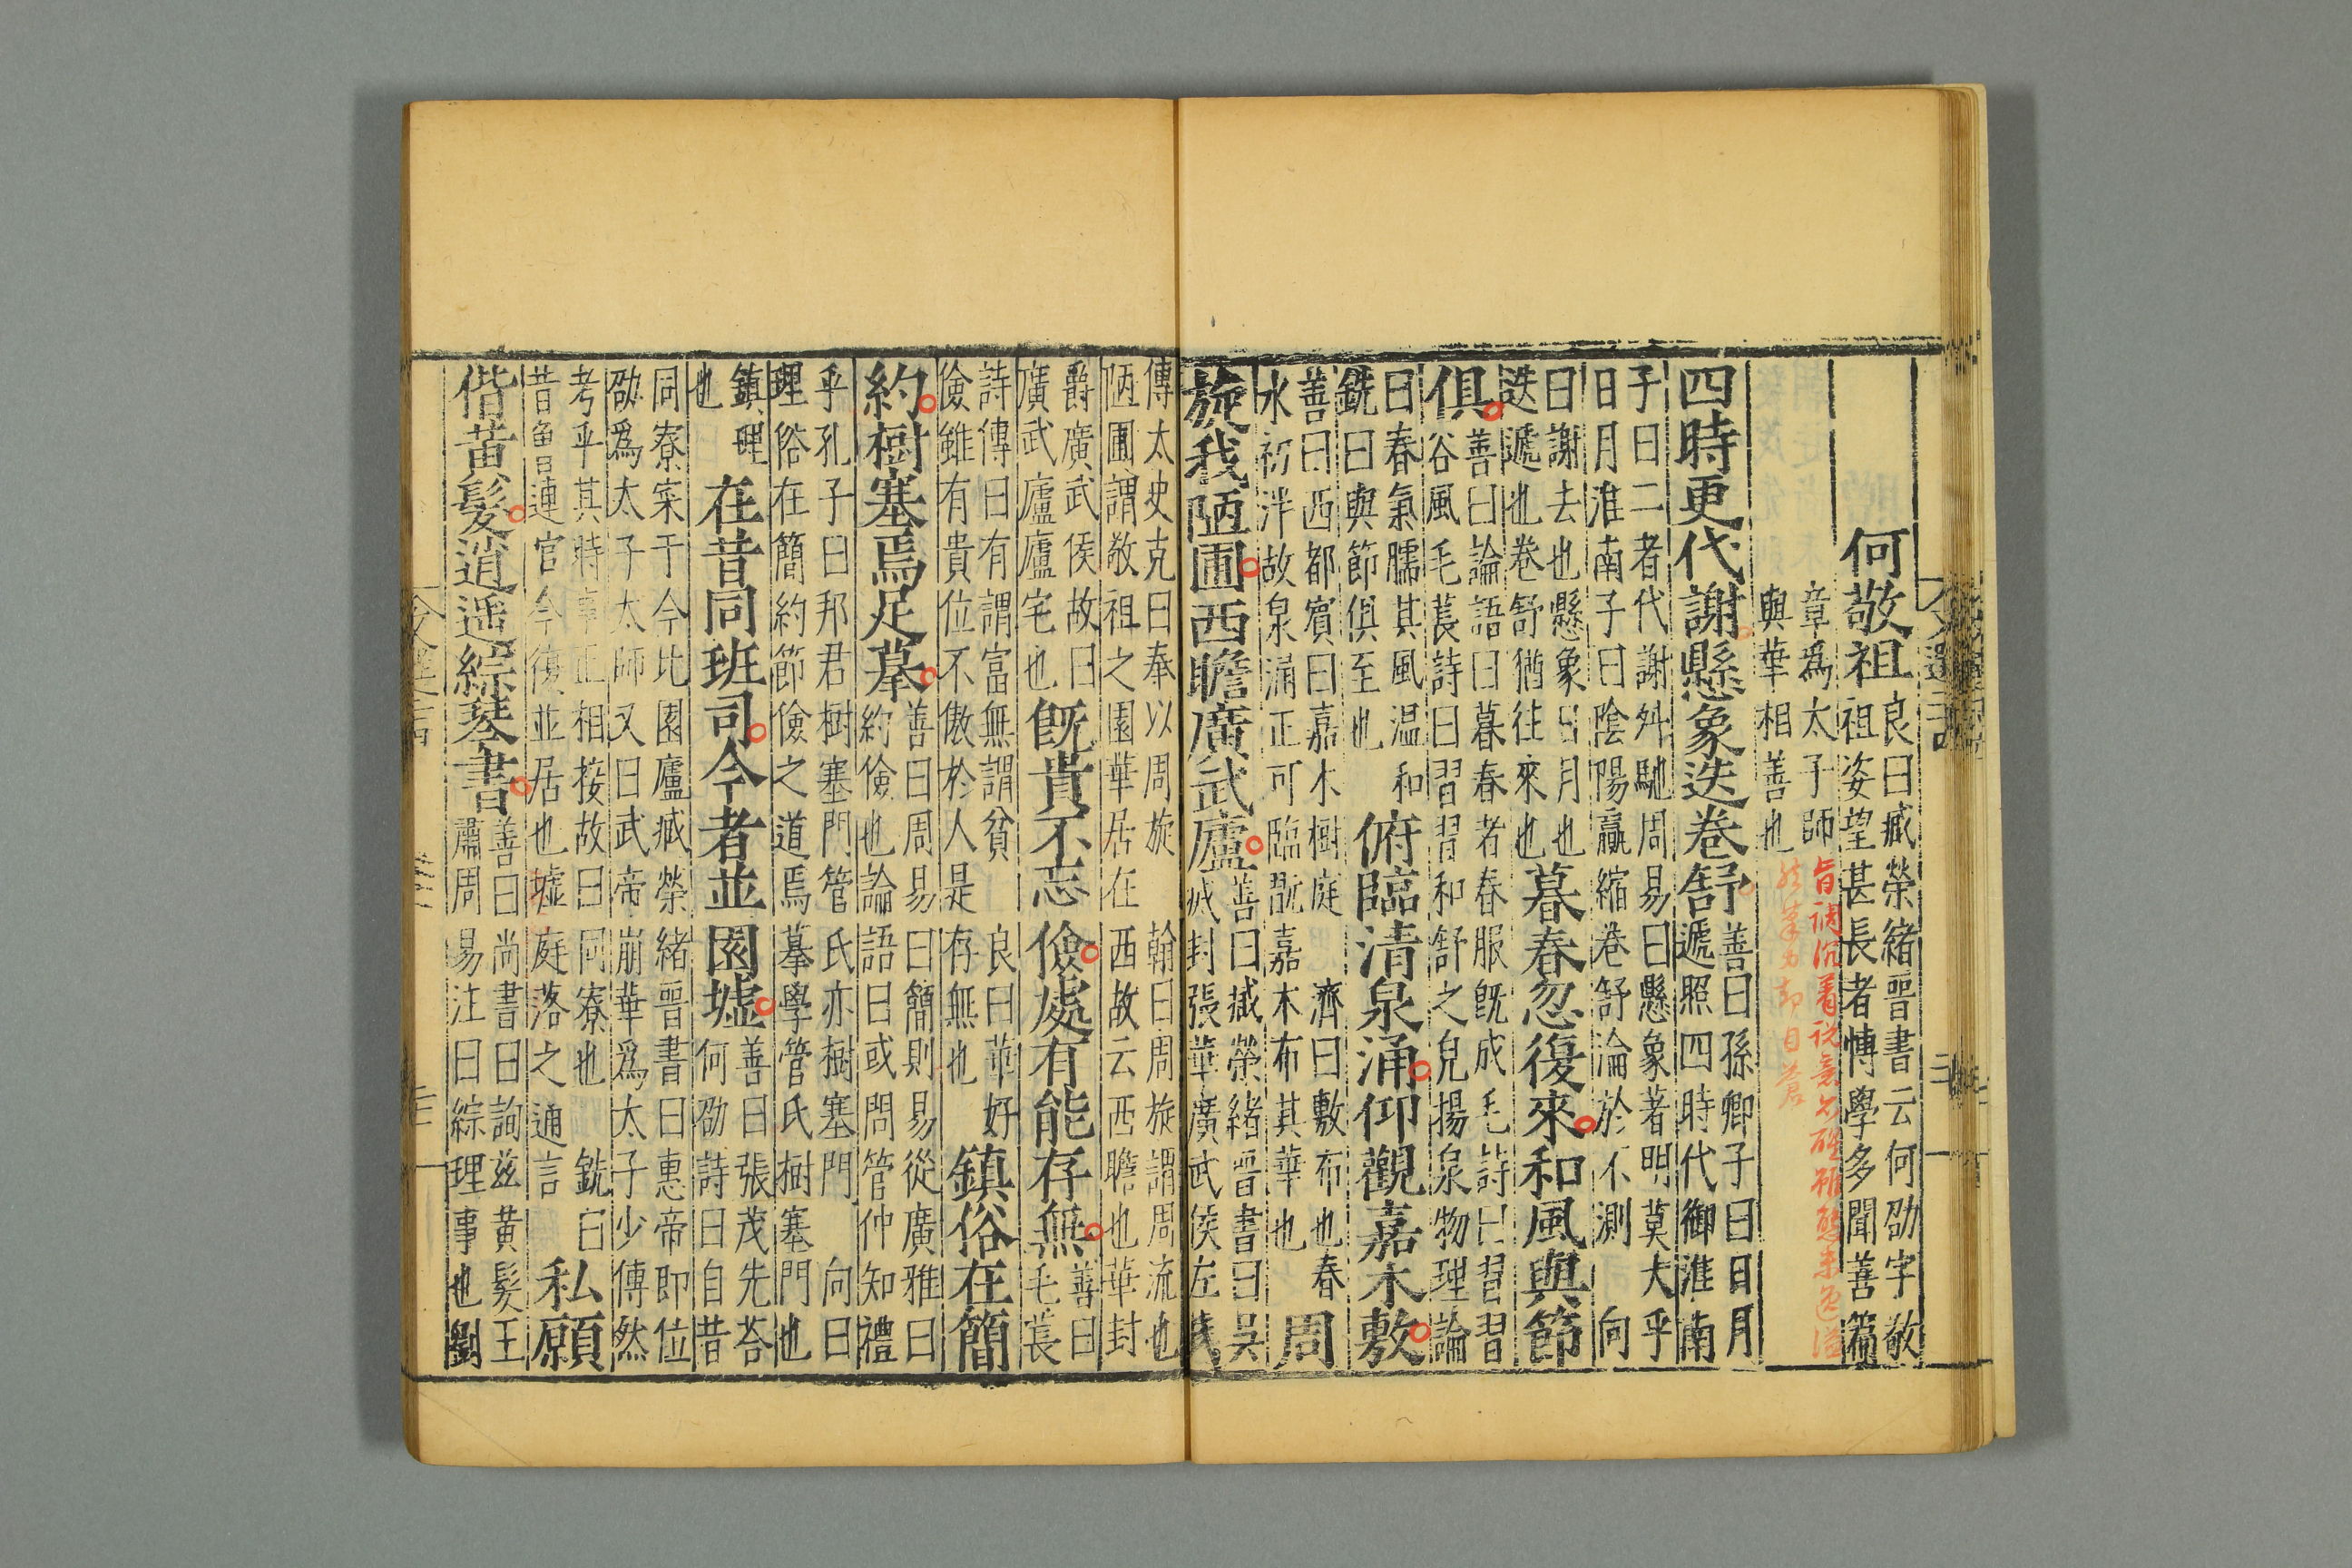 何敬祖
良曰臧榮緒晉書云何劭字敬
祖姿望甚長者愽學多聞善篇
章爲太子師
與華相善也
四時更代謝懸象迭卷舒
善曰孫卿子曰日月
遞照四時代御淮南
子曰二者代謝舛馳周易曰懸象著明莫大乎
日月淮南子曰陰陽嬴縮卷舒淪於不測 向
曰謝去也懸象日月也
迭遞也卷舒猶往來也
暮春忽復來和風與節
俱
善曰論語曰暮春者春服旣成毛詩曰習習
谷風毛萇詩曰習習和舒之皃揚泉物理論
曰春氣臑其風温和
銑曰與節俱至也
俯臨清泉涌仰觀嘉木敷
善曰西都賓曰嘉木樹庭 濟曰敷布也春
水初泮故泉涌正可臨翫嘉木布其華也
周
旋我陋圃西瞻廣武廬
善曰臧榮緒晉書曰吳
滅封張華廣武侯左氏
傳太史克曰奉以周旋 翰曰周旋謂周流也
陋圃謂敬祖之園華居在西故云西瞻也華封
爵廣武侯故曰
廣武廬廬宅也
旣貴不忘儉處有能存無
善曰
毛萇
詩傳曰有謂富無謂貧 良曰華好
儉雖有貴位不傲於人是存無也
鎮俗在簡
約樹塞焉足摹
善曰周易曰簡則易從廣雅曰
約儉也論語曰或問管仲知禮
乎孔子曰邦君樹塞門管氏亦樹塞門 向曰
理俗在簡約節儉之道焉摹學管氏樹塞門也
鎮理
也
在昔同班司今者並園墟
善曰張茂先荅
何劭詩曰自昔
同寮寀于今比園廬臧榮緒晉書曰惠帝即位
劭爲太子太師又曰武帝崩華爲太子少傅然
考乎其時事正相接故曰同寮也 銑曰
昔連官今復並居也墟庭落之通言
私願
偕黃髮逍遥綜琴書
善曰尚書曰詢茲黃髮王
肅周易注曰綜理事也劉